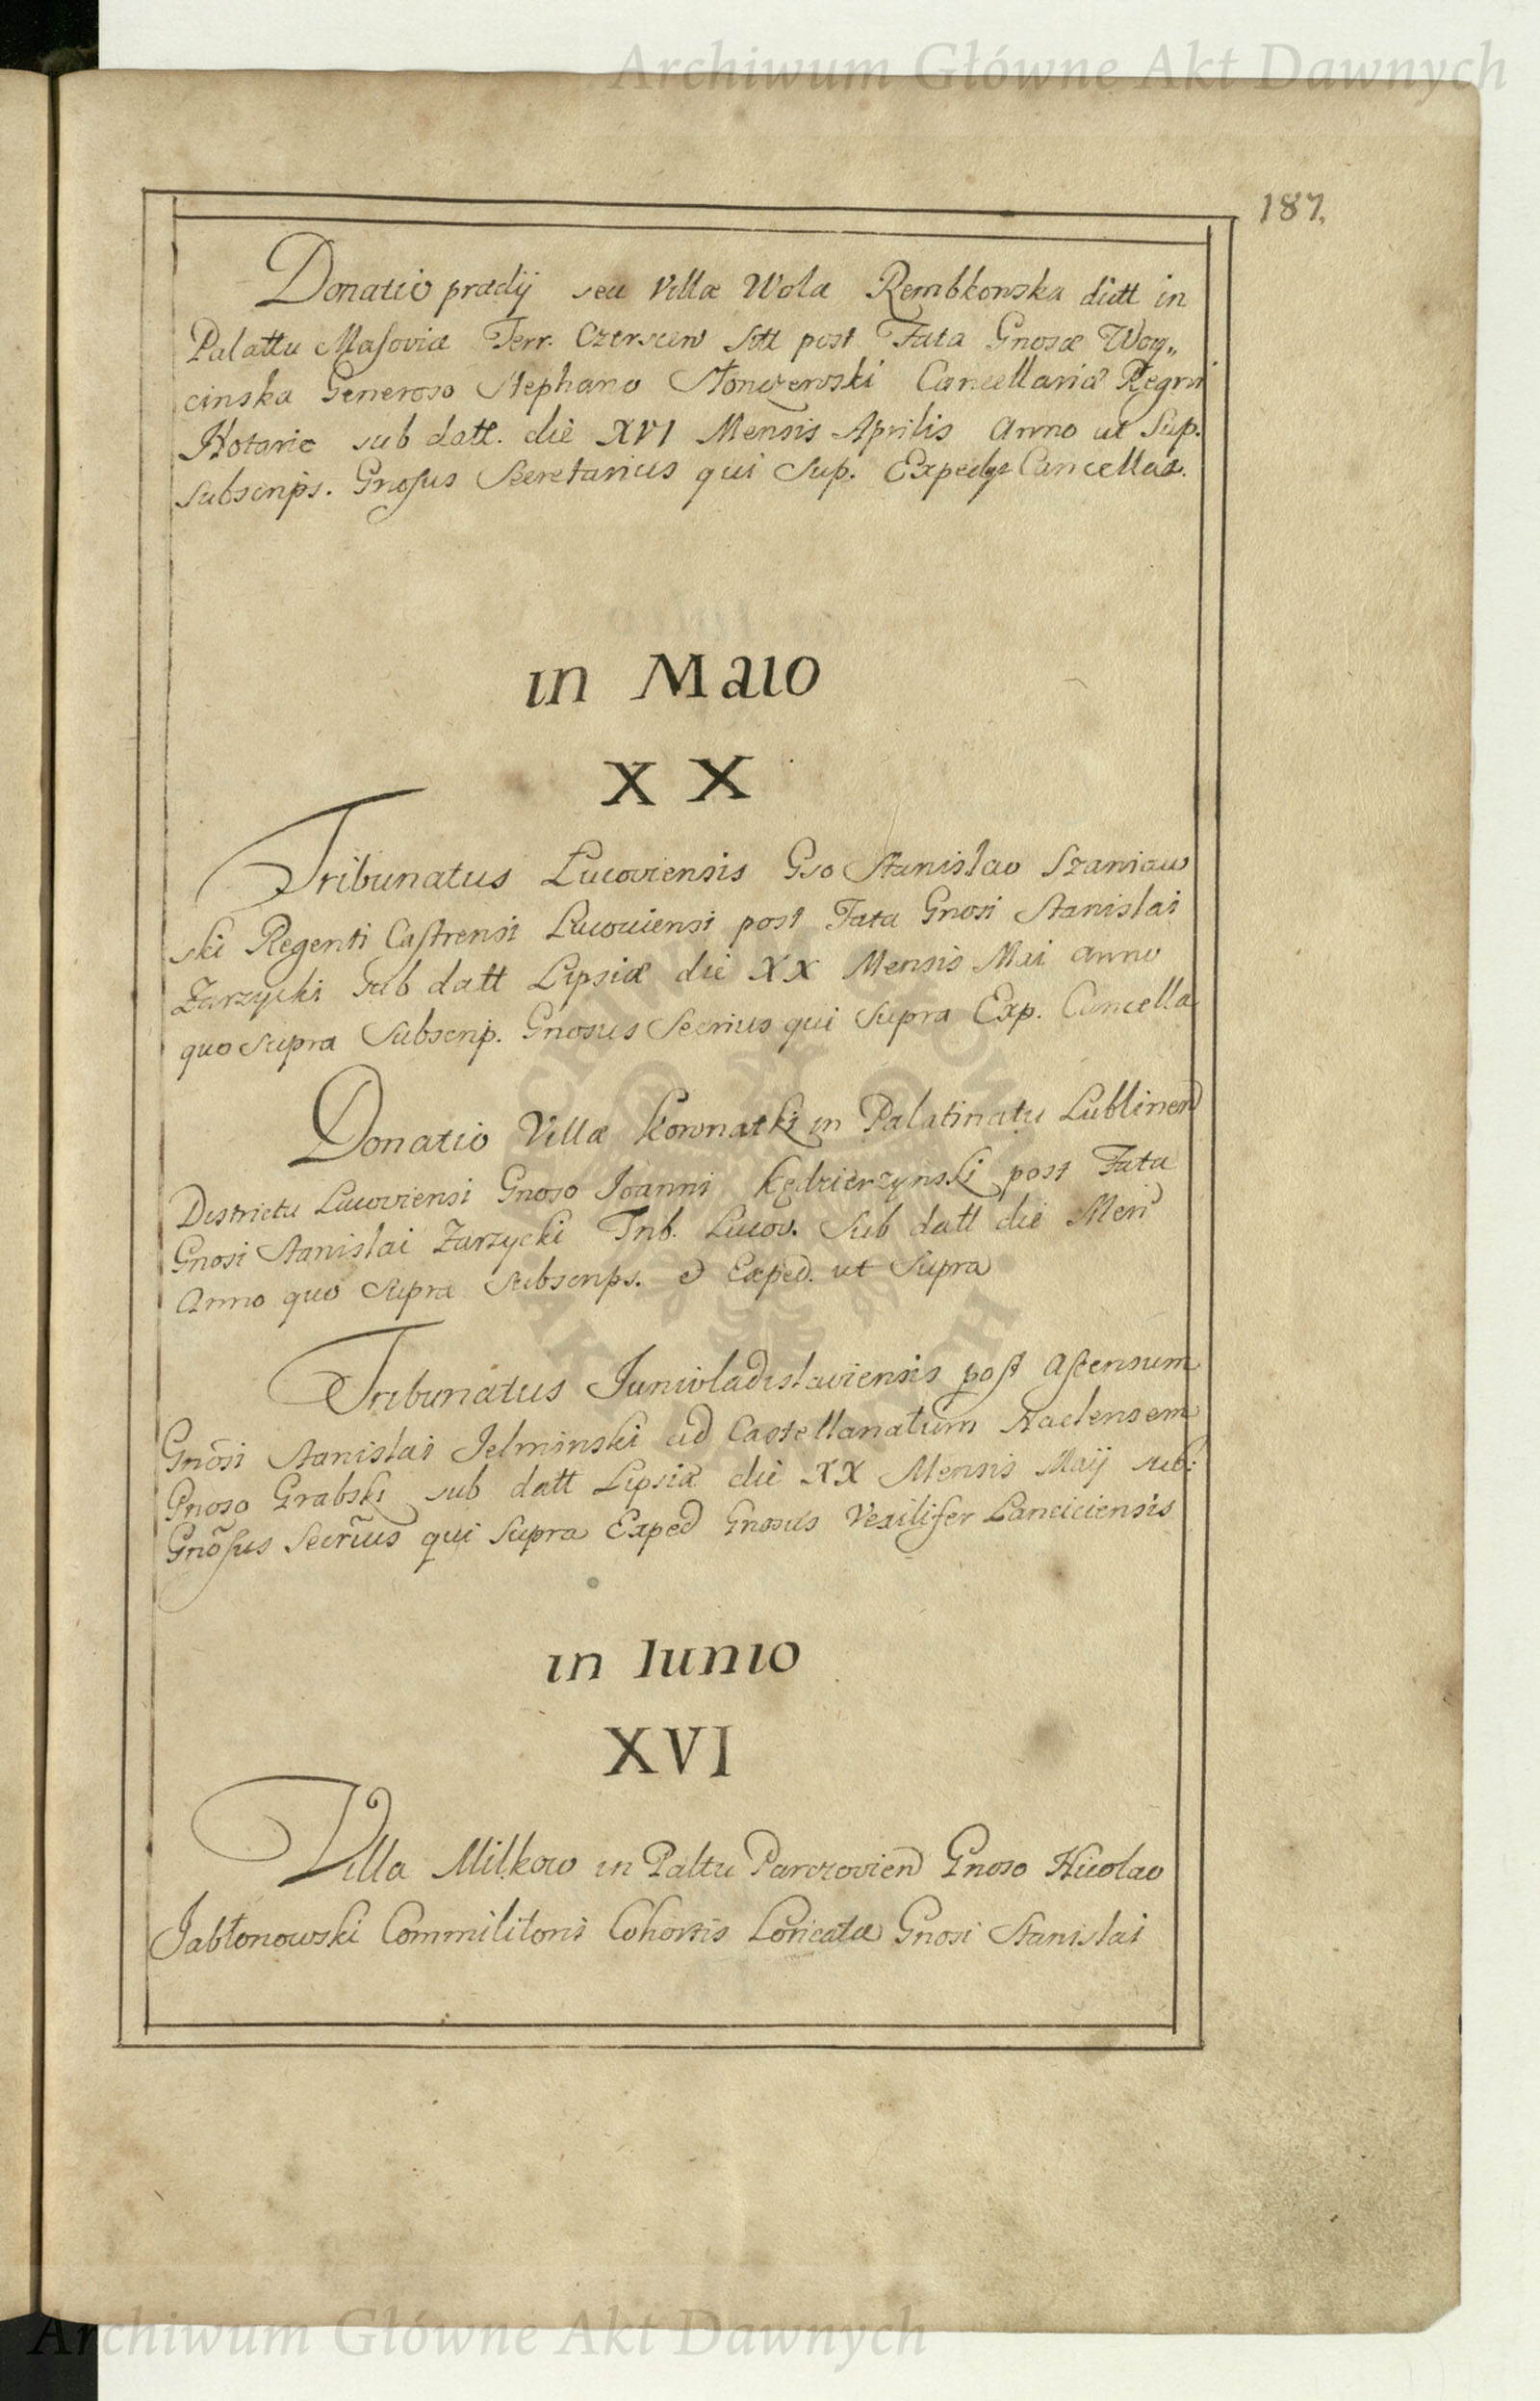 Archiwum Główne Akt Dawnych
187.
Donatio prædij seu Villæ Wola Rembkowska dictt in
Palattu Masoviæ Terr. Czerscen Sitt post Fata Gnosæ Woy„
cinska Generoso Stephano Słonczewski Cancellariæ Regni
Notario sub datt. die XVI Mensis Aprilis Anno ut Sup.
Subscrips. Gnosus Secretarius qui Sup. Cancellar.
in Maio
XX
Tribunatus Lucoviensis Gso Stanislao Szaniaw
ski Regenti Castrensi Lucoviensi post Fata Gnosi Stanislai
Zarzycki Sub datt Lipsiæ die XX Mensis Mai anno
quo supra Subscrip. Gnosus Secrius qui Supra Exp. Cancella
Donatio Villæ Kownatki in Palatinatu Lublinen
Districtu Lucoviensi Gnoso Joanni Kędzierzynski post Fata
Gnosi Stanislai Zarzycki Trib. Lucov. Sub datt die Men
Anno quo Supra Subscrips. & Exped. ut Supra
Tribunatus Junivladislaviensis post Ascensum
Gnosi Stanislai Jelminski ad Castellanatum Naclensem
Gnoso Grabski sub datt Lipsiæ die XX Mensis Maij sub:
Gnõsus Secrĩus qui Supra Exped Gnosus Vexilifer Lanciciensis
in Iunio
XVI
Villa Milkow in Paltu Parczovien Gnoso Nicolao
Jabłonowski Commilitoni Cohortis Loricatæ Gnosi Stanislai
Archiwum Główne Akt Dawnych